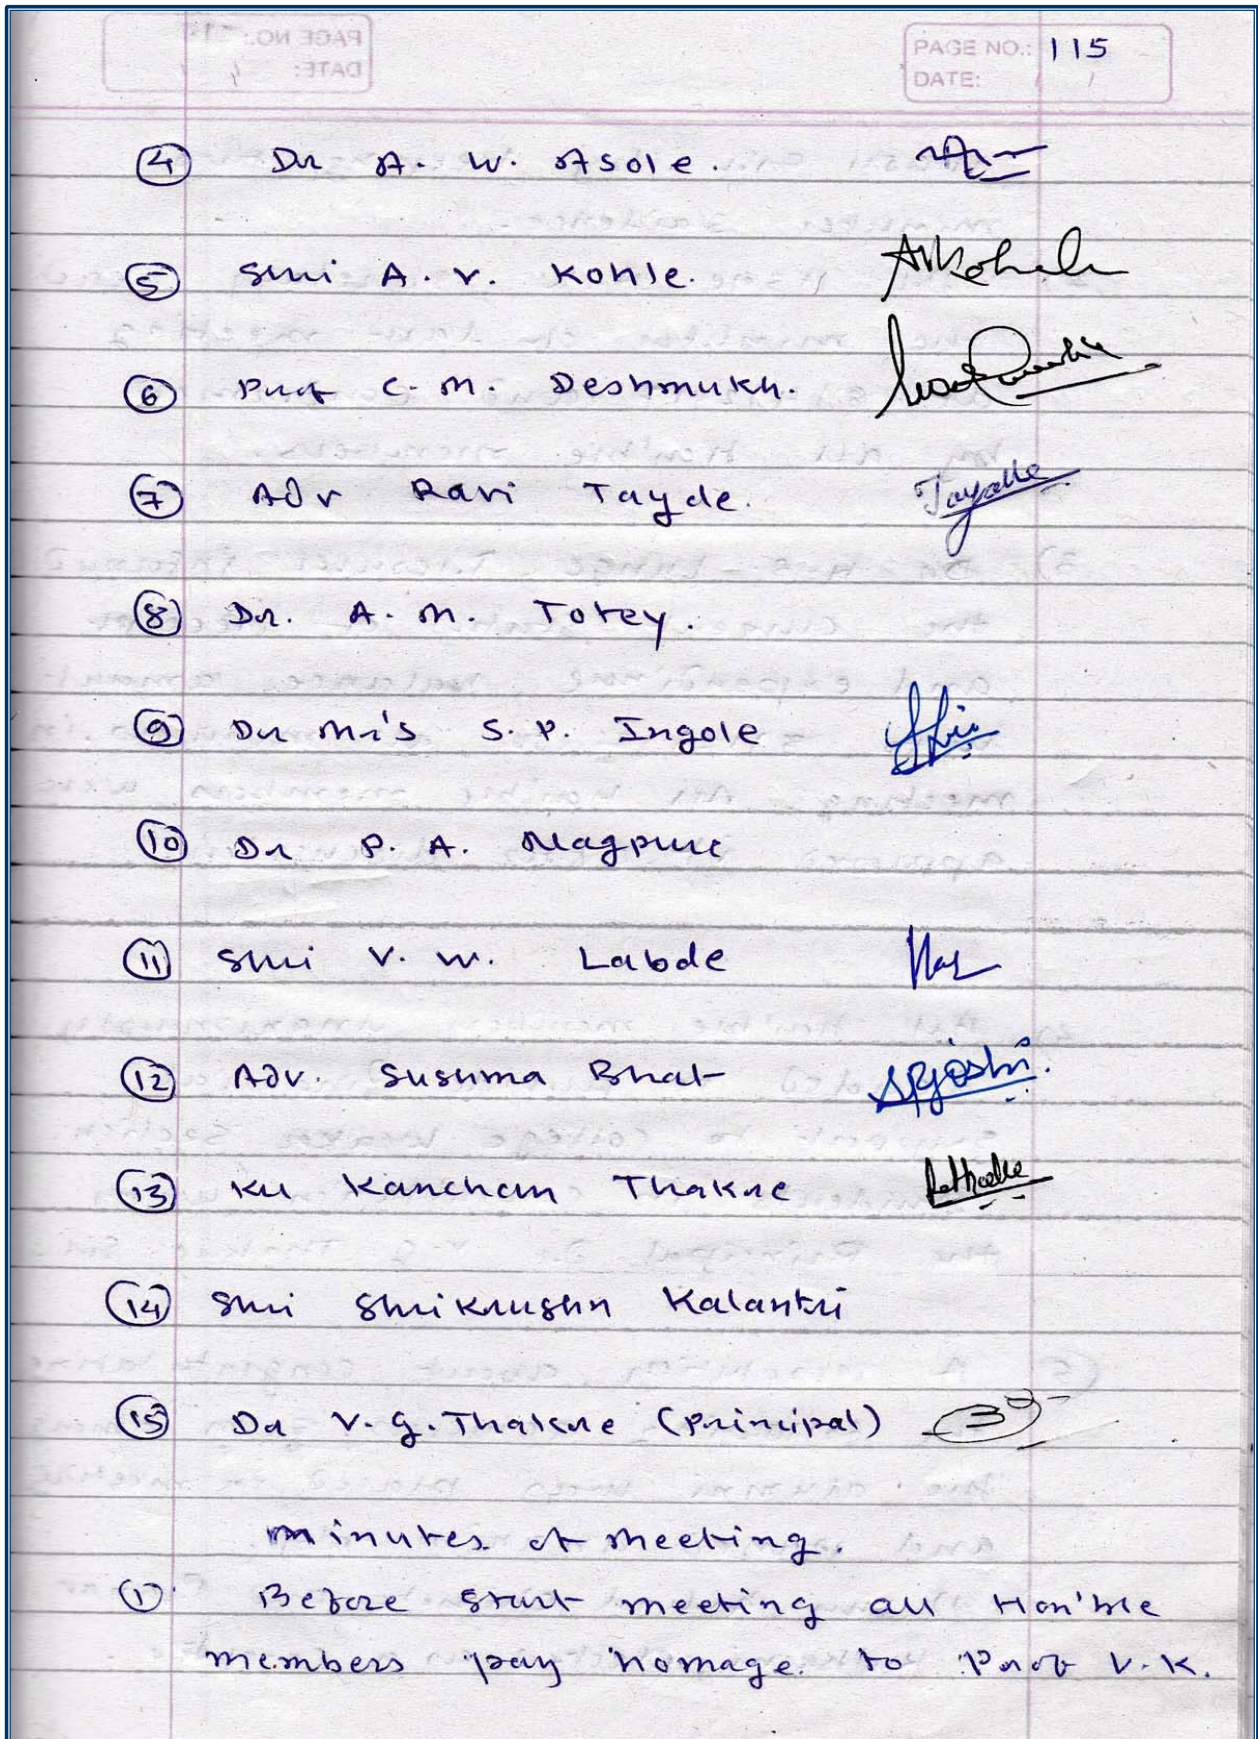 PAGE NO.: 115
DATE: / /
④ Dr A. W. Asole.
⑤ Shri A. V. Kohle.
⑥ Prof C. M. Deshmukh.
⑦ Adv Ravi Tayde. Tayade
⑧ Dr. A. M. Totey.
⑨ Dr Mr's S. P. Ingole
⑩ Dr P. A. Nagpure
⑪ Shri V. W. Labde
⑫ Adv. Sushma Bhat SRJoshi.
⑬ Ku Kancham Thakre
⑭ Shri Shrikrushn Kalantri
⑮ Dr V. G. Thakre (Principal)
minutes of meeting.
① Before start meeting all Hon'ble
members pay homage. to Prof V. K.